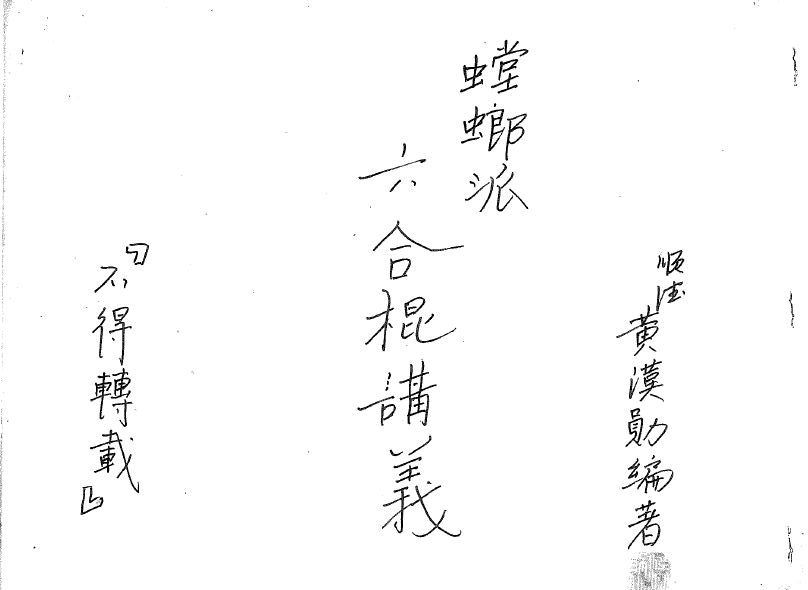 順德黃漢勛編著
螳螂派
六合棍講義
『不得轉載』